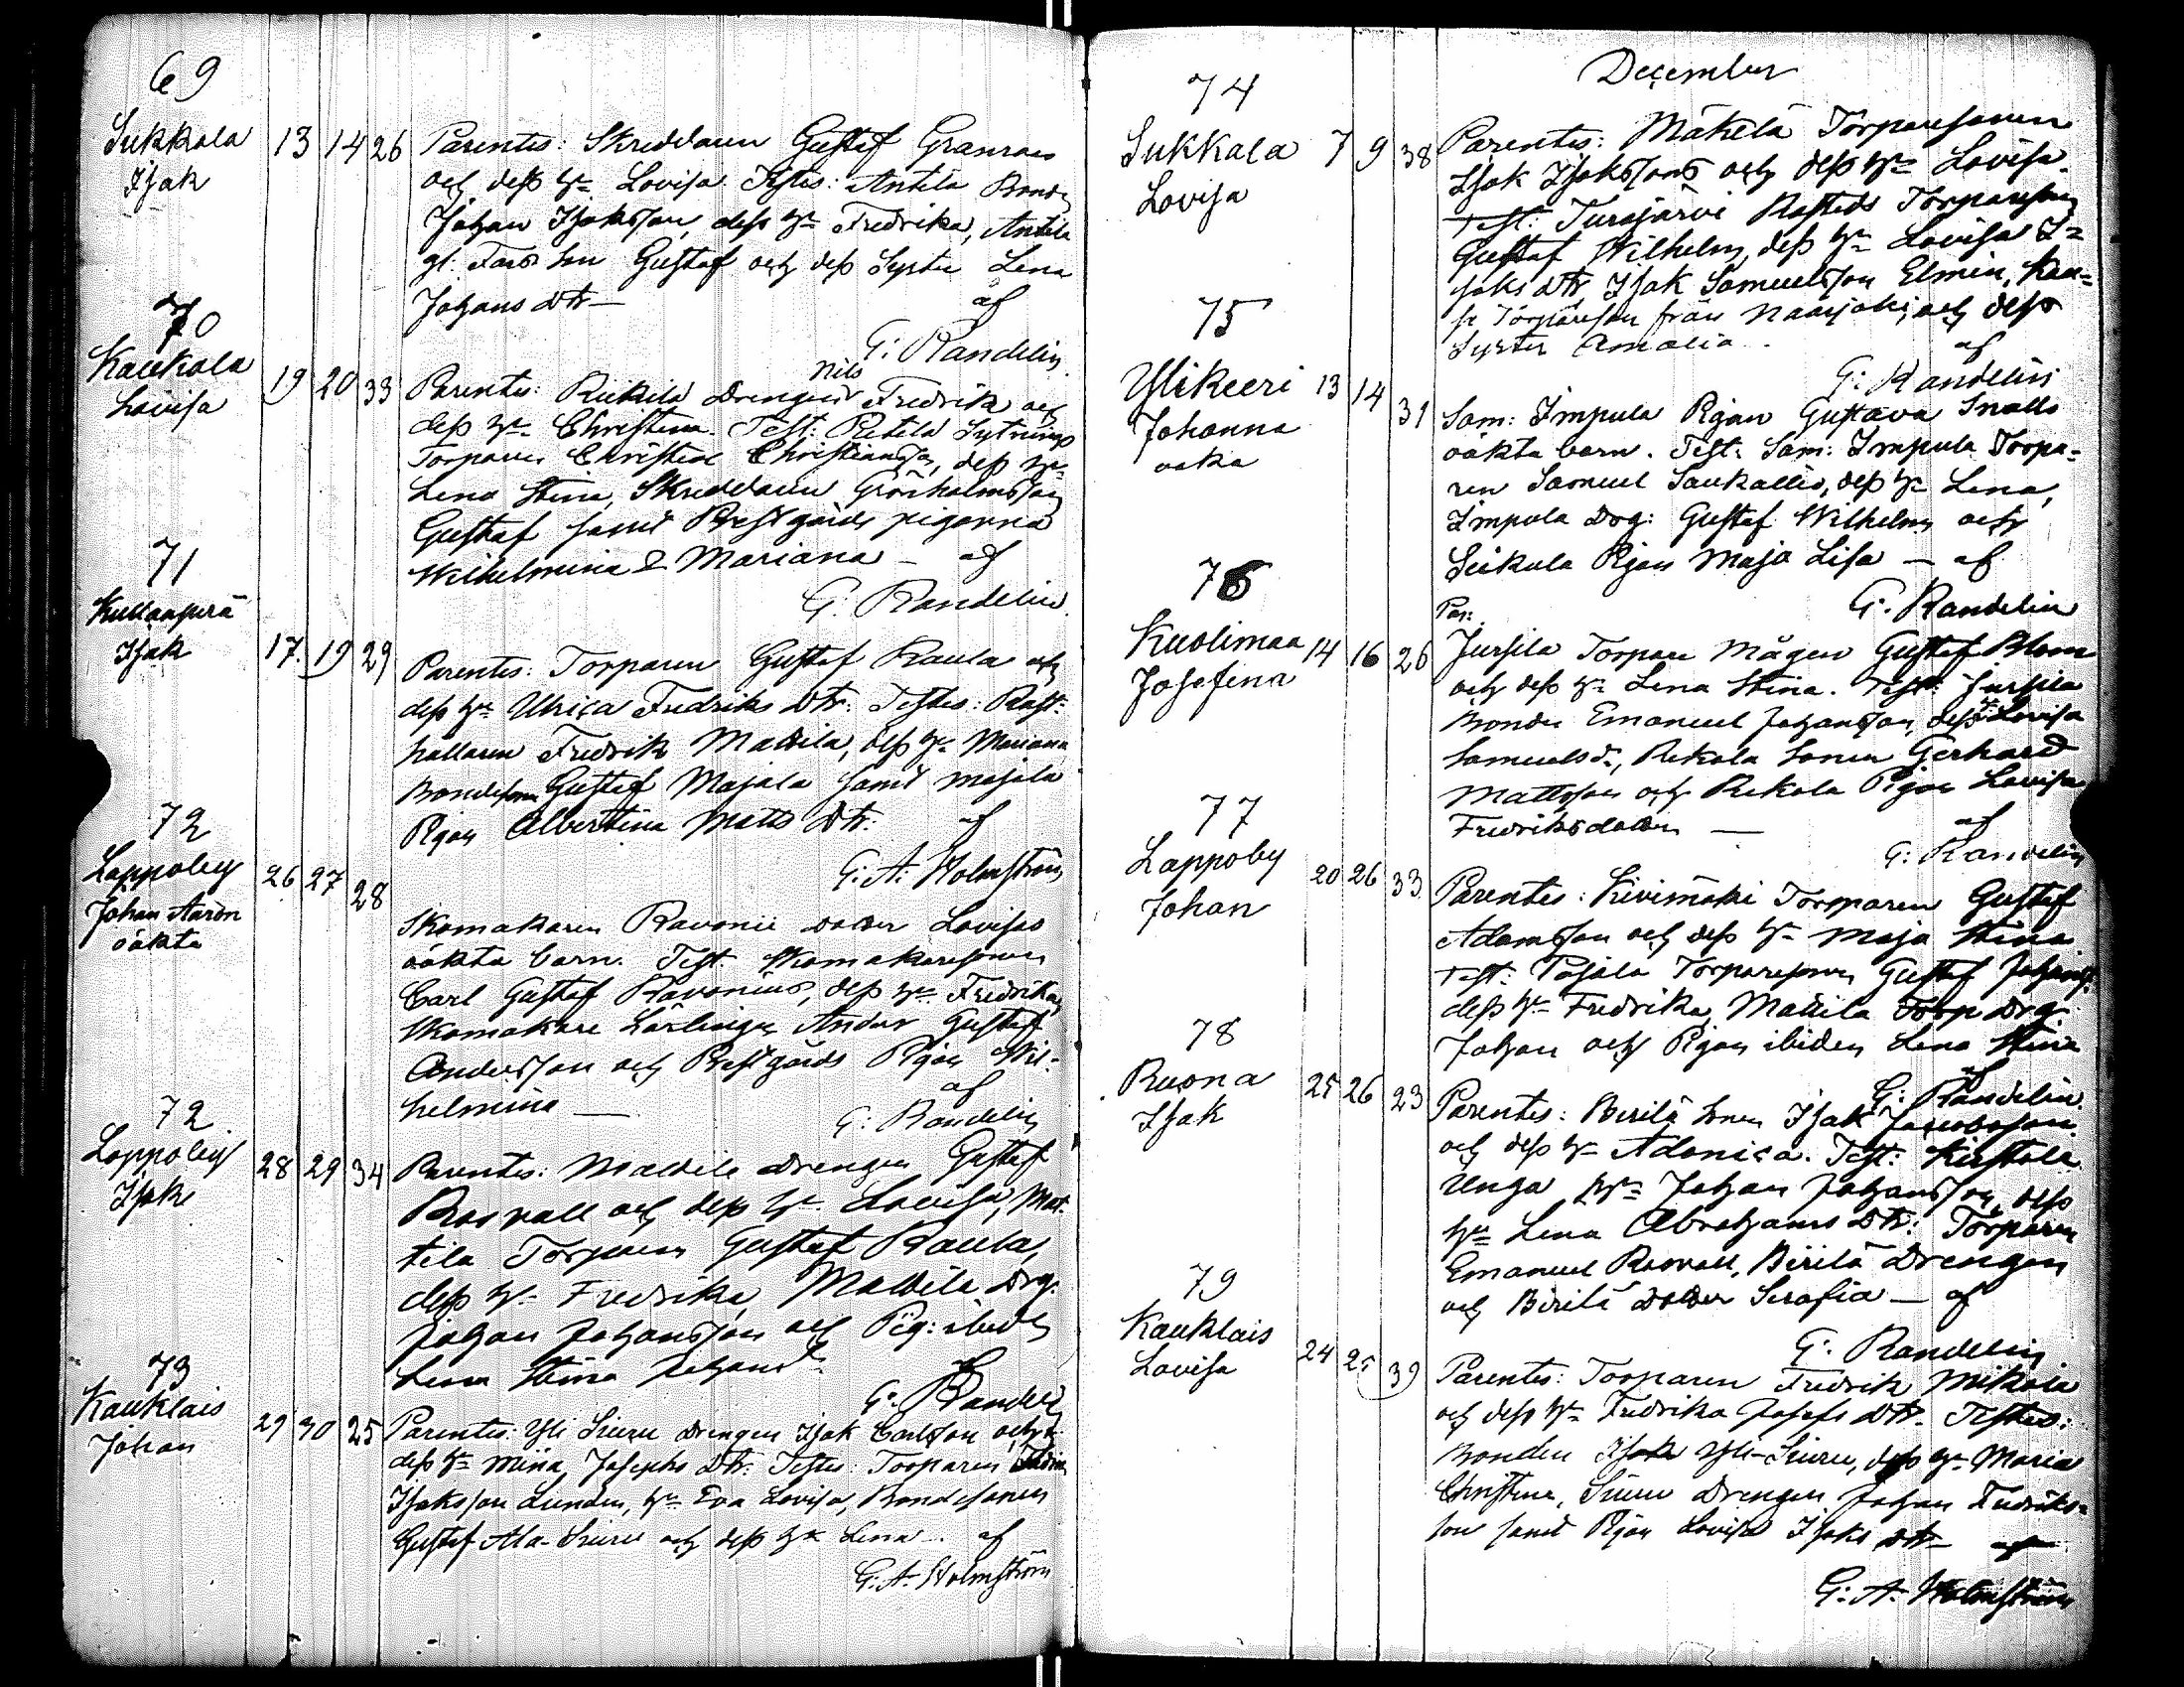 69
Sukkola
Isak
13 14 26
Parentes: Skreddaren Gustaf Granroos
och dess h: Lovisa. Testes: Antila Bonde
Johan Isaksson, dess h: Fredrika, Antila
gl. Fars Son Gustaf och dess Syster Lena
Johans dtr — af
G: Randelin
70
Kaukola
Lovisa
19 20 33
Parentes: Riikilä Drengen Nils Fredrik och
dess h: Christina. Test: Pietilä Sytnings
Torparen Christer Christiansson, dess h:
Lena Stina, Skreddaren Grönholms son
Gustaf samt Prestgårds pigorna
Wilhelmina & Mariana — af
G. Randelin
71
Kullanperä
Isak
17. 19 29
Parentes: Torparen Gustaf Raula och
dess h: Ulrica Fredriks Dtr: Testes: Rust:
hållaren Fredrik Mattila, dess h: Mariana
Bondeson Gustaf Majala samt Majala
Pigan Albertina Matts Dtr: af
G: A: Holmström
72
Lappoby
Johan Aaron
oäkta
26 27 28
Skomakaren Ravonii dotter Lovisas
oäkta barn. Test. Skomakaresonen
Carl Gustaf Ravonius, dess h: Fredrika,
Skomakare Lärlingen Anders Gustaf
Andersson och Prestgårds Pigan Wil-
helmina — af
G: Randelin
72
Lappoby
Isak
28 29 34
Parentes: Mattila Drengen Gustaf
Rosvall och dess h: Lovisa, Mat-
tila Torparen Gustaf Raula,
dess h: Fredrika, Mattila Drg:
Johan Johansson och Pig: ibid
Lena Stina Johansd:
G: Randel
73
Kauklais
Johan
29 30 25
Parentes: Yli Siuru Drengen Isak Carlsson och
dess h: Mina Josephs Dtr: Testes: Torparen
Isaksson Lunden, h: Eva Lovisa, Bondesonen
Gustaf Ala-Siuru och dess h: Lena. af
G: A: Holmström
December
74
Sukkala
Lovisa
7 9 38
Parentes: Mäkelä Torparesonen
Isak Isaksson och dess h: Lovisa.
Test: Turajärvi Rusteds Torpareson
Gustaf Wilhelm, dess h: Lovisa I=
saks dtr Isak Samuelsson Elmin, Kau=
Torpareson från Naarjoki, och dess
Syster Amalia. af
G: Randelin
75
Ylikeeri
Johanna
oäka
13 14 31
Sam: Impula Pigan Gustava Snälls
oäkta barn. Test: Sam: Impula Torpa=
ren Samuel Saukallio, dess h: Lena,
Impola Drg: Gustaf Wilhelm och
Seikula Pigan Maja Lisa — af
G. Randelin
76
Kuolimaa
Josefina
14 16 26
Par:
Jussila Torpare Mågen Gustaf Blom
och dess h: Lena Stina. Test: Jussila
Bonden Emanuel Johansson, dess h: Lovisa
Samuelsd:, Rekola Sonen Gerhard
Mattsson och Rekola Pigan Lovisa
Fredriksdotter — af
G: Randelin
77
Lappoby
Johan
20 26 33
Parentes: Kivimäki Torparen Gustaf
Adamsson och dess h: Maja Stina
Test: Pajala Torparesonen Gustaf Johanss:
dess h: Fredrika, Mattila Torp Drg:
Johan och Pigan ibiden Lena Stina
af
G: Randelin.
78
Ruona
Isak
25 26 23
Parentes: Birilä Sonen Isak Jacobsson
och dess h: Adamica. Test: Kirstola
Unga h: Johan Johansson, dess
h: Lena Abrahams Dtr: Torparen
Emanuel Rosvall, Birilä Drengen
och Birilä dotter Serafia — af
G: Randelin
79
Kauklais
Lovisa
24 25 39
Parentes: Torparen Fredrik Mikola
och dess h: Fredrika Josefs Dtr. Testes:
Bonden Isak Yli-Siuru, dess h: Maria
Christina, Siuru Drengen Johan Fredriks=
son samt Pigan Lovisa Isaks Dtr — af
G: A. Holmström